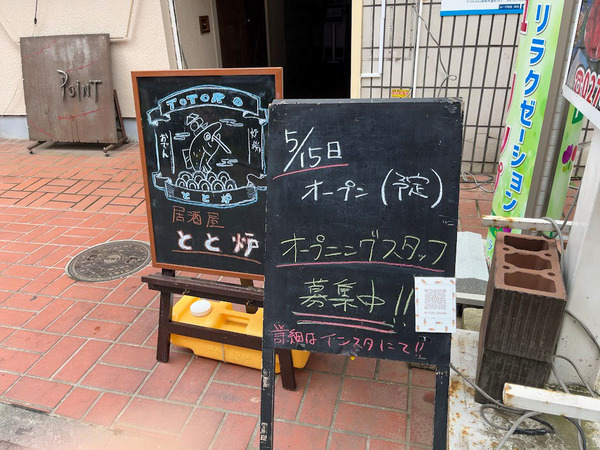 POINT
TOTORO
おでん
炉端
とと炉
居酒屋
とと炉
5/15日
オープン(予定)
オープニングスタッフ
募集中!!
詳細はインスタにて!!
リラクゼーション
☎027